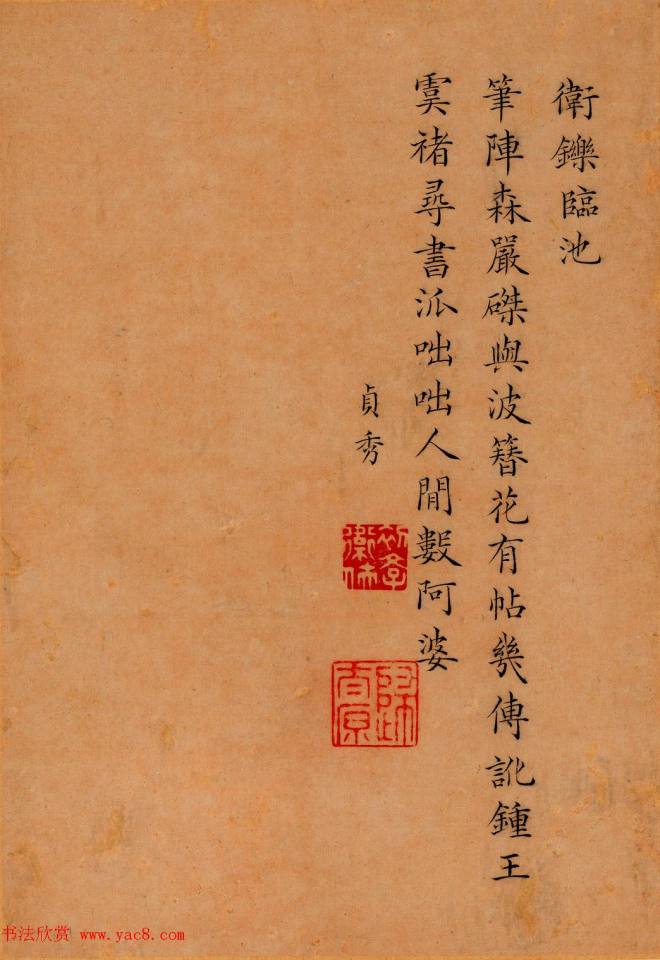 衛鑠臨池
筆陣森嚴磔與波簪花有帖幾傳訛鍾王
虞禇尋書泒咄咄人閒數阿婆
貞秀
书法欣赏 www.yac8.com